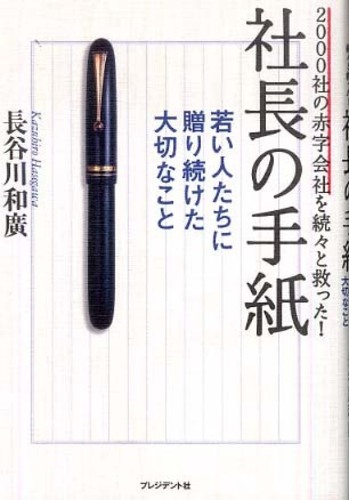 2000社の赤字会社を続々と救った!
社長の手紙
若い人たちに
贈り続けた
大切なこと
長谷川和廣
Kazuhiro Hasegawa
プレジデント社
社長の手紙
大切なこと